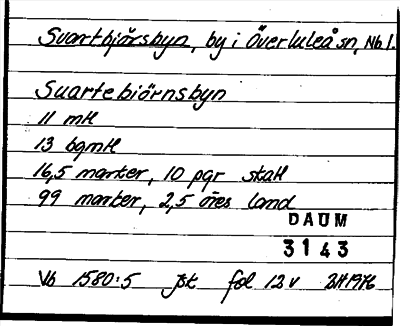 Svartbjörsbyn, by i Överluleå sn, Nbl.
Suartebiörnsbyn
11 mtl
13 bgmtl
16,5 marker, 10 pgr skatt
99 marker, 2,5 öres land
DAUM
3143
Vb 1580:5 fol 12v 1976